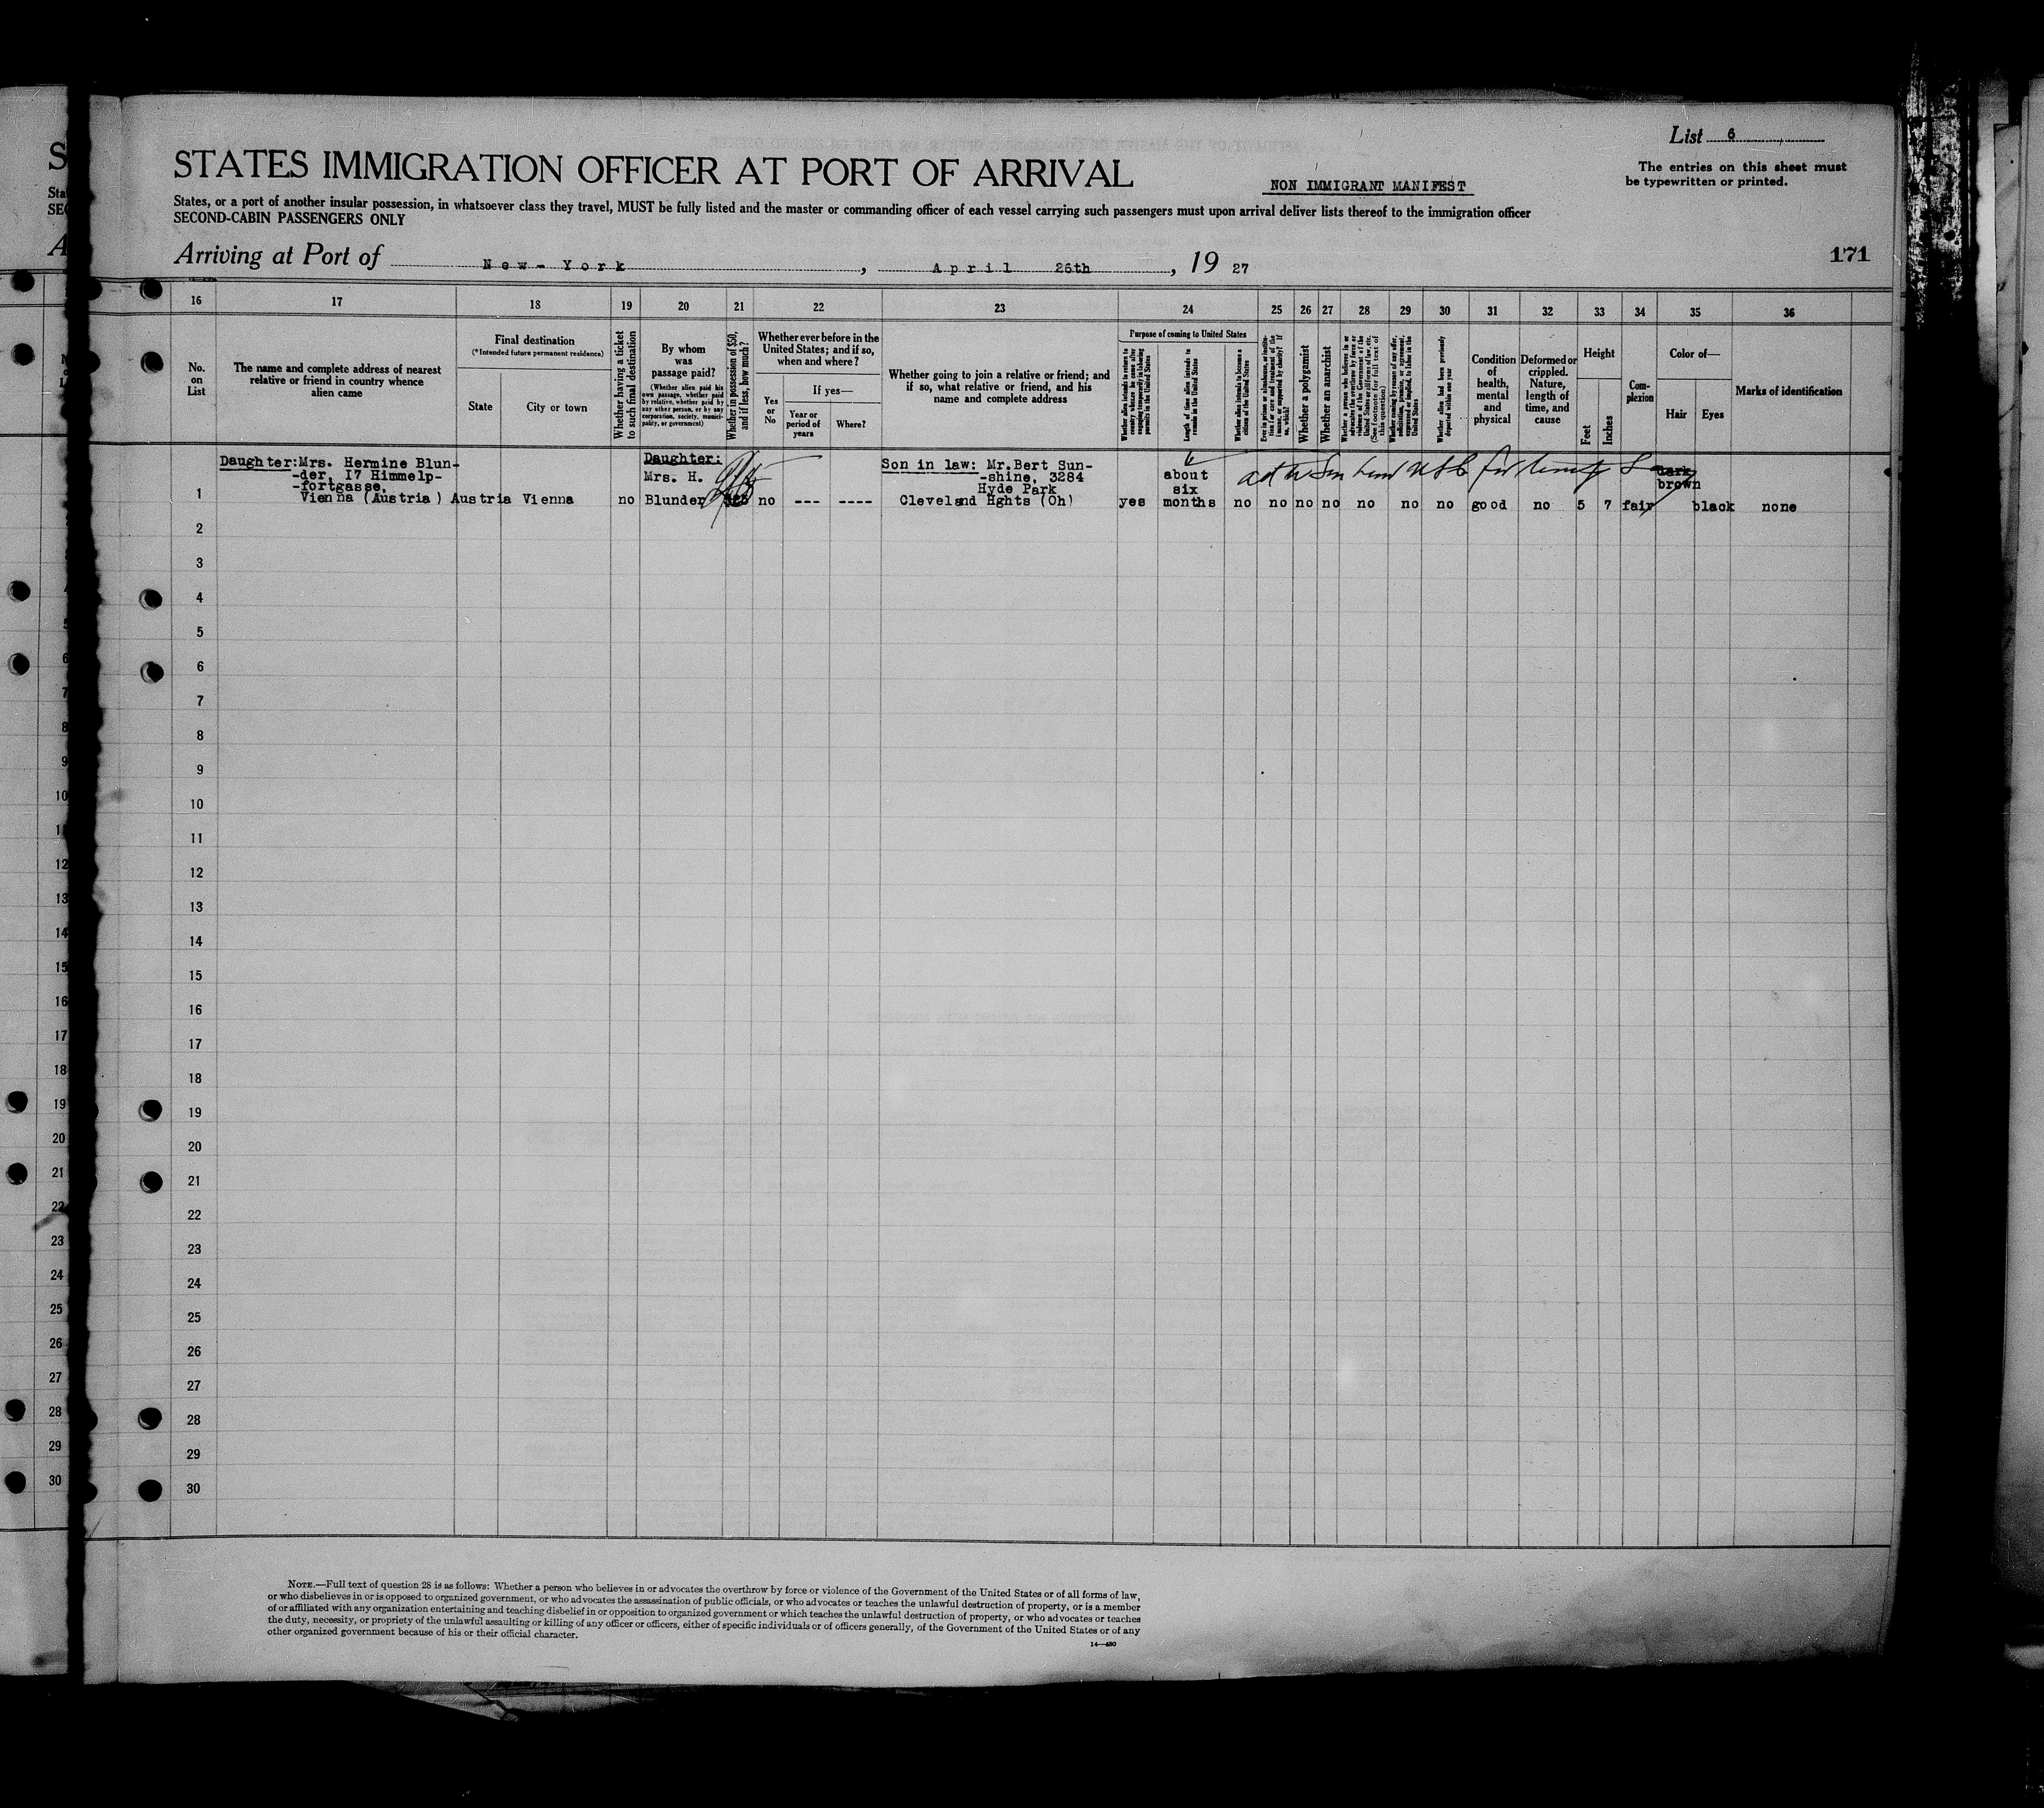 List 6
The entries on this sheet must
be typewritten or printed.
STATES IMMIGRATION OFFICER AT PORT OF ARRIVAL
NON IMMIGRANT MANIFEST
States, or a port of another insular possession, in whatsoever class they travel, MUST be fully listed and the master or commanding officer of each vessel carrying such passengers must upon arrival deliver lists thereof to the immigration officer
SECOND-CABIN PASSENGERS ONLY
Arriving at Port of New-York, April 26th, 19 27
171
16 17 18 19 20 21 22 23 24 25 26 27 28 29 30 31 32 33 34 35 36
No.
on
List
The name and complete address of nearest
relative or friend in country whence
alien came
Final destination
(*Intended future permanent residence)
State
City or town
Whether having a ticket
to such final destination
By whom
was
passage paid?
(Whether alien paid his
own passage, whether paid
by relative, whether paid by
any other person, or by any
corporation, society, munici-
pality, or government)
Whether in possession of $50,
and if less, how much?
Whether ever before in the
United States; and if so,
when and where?
Yes
or
No
If yes—
Year or
period of
years
Where?
Whether going to join a relative or friend; and
if so, what relative or friend, and his
name and complete address
Purpose of coming to United States
Whether alien intends to return to
country whence he came after
engaging temporarily in laboring
pursuits in the United States
Length of time alien intends to
remain in the United States
Whether alien intends to become a
citizen of the United States
Whether a polygamist
Whether an anarchist
Whether alien had been previously
deported within one year
Condition
of
health,
mental
and
physical
Deformed or
crippled.
Nature,
length of
time, and
cause
Height
Feet
Inches
Com-
plexion
Color of—
Hair
Eyes
Marks of identification
Daughter:Mrs. Hermine Blun-
-der, I7 Himmelp-
-fortgasse,
Vienna (Austria) Austria Vienna
no
Daughter:
Mrs. H.
Blunder
no --- ----
Son in law: Mr.Bert Sun-
-shine, 3284
Hyde Park
Cleveland Hghts (Oh)
yes
about
six
months
no no no no no no no good no 5 7 fair
dark
brown
black none
1
2
3
4
5
6
7
8
9
10
11
12
13
14
15
16
17
18
19
20
21
22
23
24
25
26
27
28
29
30
NOTE.—Full text of question 28 is as follows: Whether a person who believes in or advocates the overthrow by force or violence of the Government of the United States or of all forms of law,
or who disbelieves in or is opposed to organized government, or who advocates the assassination of public officials, or who advocates or teaches the unlawful destruction of property, or is a member
of or affiliated with any organization entertaining and teaching disbelief in or opposition to organized government or which teaches the unlawful destruction of property, or who advocates or teaches
the duty, necessity, or propriety of the unlawful assaulting or killing of any officer or officers, either of specific individuals or of officers generally, of the Government of the United States or of any
other organized government because of his or their official character.
14—480